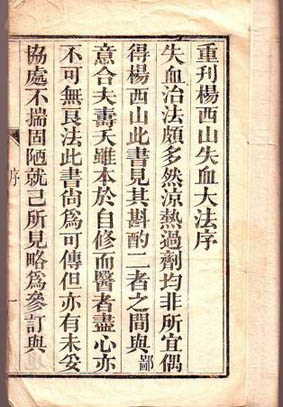 重刊楊西山失血大法序
失血治法頗多然涼熱過劑均非所宜偶
得楊西山此書見其斟酌二者之間與鄙
意合夫壽夭雖本於自修而醫者盡心亦
不可無良法此書尚為可傳但亦有未妥
協處不揣固陋就己所見略為參訂與
序